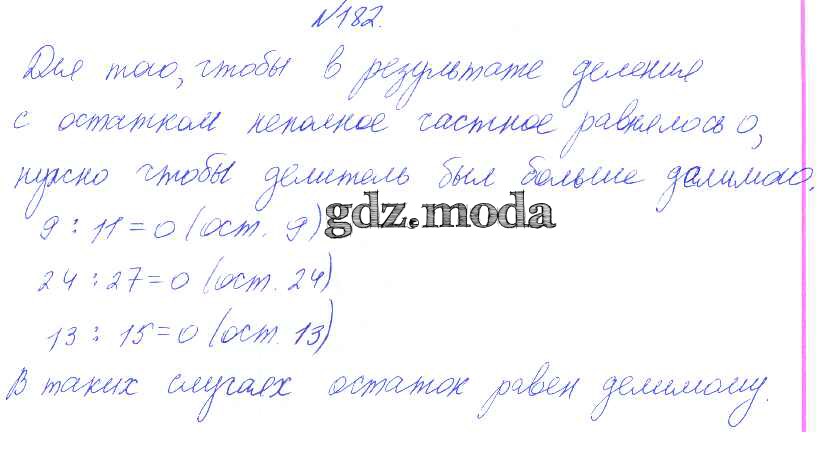 №182.
Для того, чтобы в результате деления
с остатком неполное частное равнялось 0,
нужно чтобы делитель был больше делимого.
9 : 11 = 0 (ост. 9)
gdz.moda
24 : 27 = 0 (ост. 24)
13 : 15 = 0 (ост. 13)
В таких случаях остаток равен делимому.